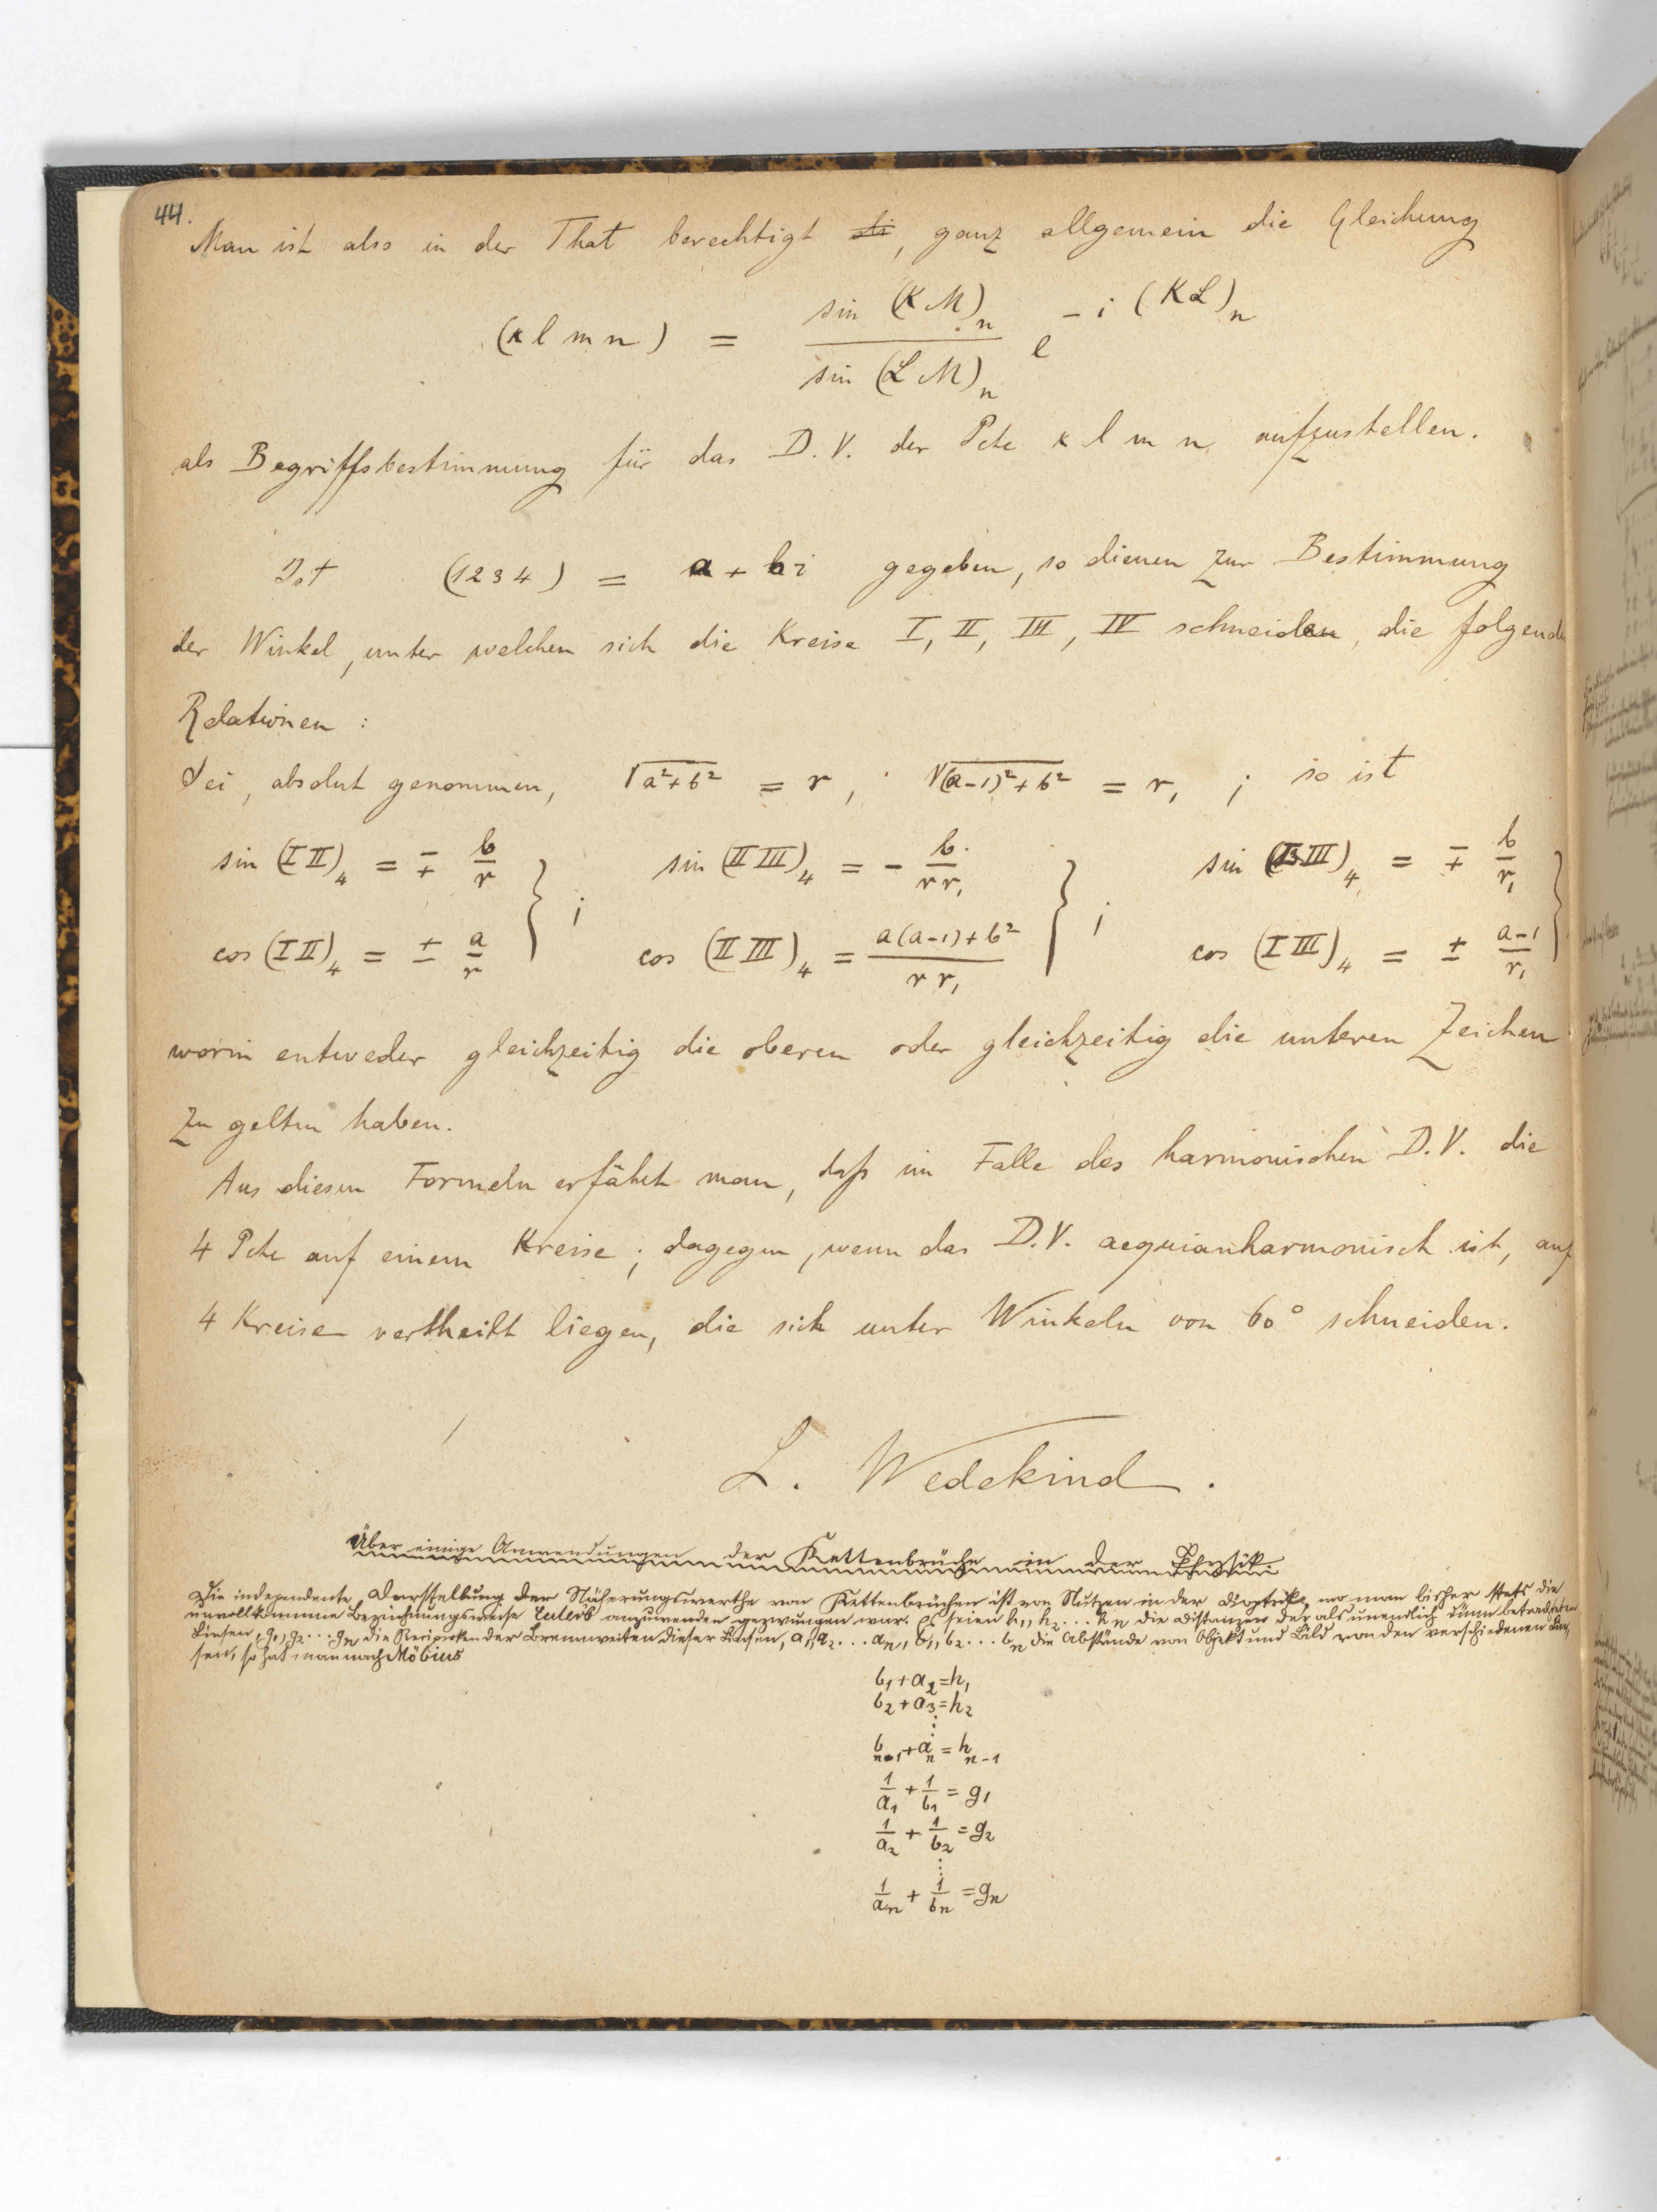 44.
Man ist also in der That berechtigt di, ganz allgemein die Gleichung
(k l m n) = sin (K M)_n / sin (L M)_n e^{- i (K L)_n}
als Begriffsbestimmung für das D. V. der Pcte k l m n aufzustellen.
Ist (1 2 3 4) = a + b i gegeben, so dienen zur Bestimmung
der Winkel, unter welchen sich die Kreise I, II, III, IV schneiden, die folgend
Relationen :
Sei, absolut genommen, √a²+b² = r, ; √(a-1)²+b² = r₁ ; so ist
sin (I II)₄ = ∓ b/r } ; sin (II III)₄ = - b/(r r₁) } ; sin (I III)₄ = ∓ b/r₁ }
cos (I II)₄ = ± a/r } ; cos (II III)₄ = (a(a-1)+b²)/(r r₁) } ; cos (I III)₄ = ± (a-1)/r₁ }
worin entweder gleichzeitig die oberen oder gleichzeitig die unteren Zeichen
zu gelten haben.
Aus diesen Formeln erfährt man, daß im Falle des harmonischen D. V. die
4 Pcte auf einem Kreise ; dagegen, wenn das D. V. aequianharmonisch ist, auf
4 Kreise vertheilt liegen, die sich unter Winkeln von 60° schneiden.
L. Wedekind.
Über einige Anwendungen der Kettenbrüche in der Physik.
Die independente Darstellung der Näherungswerthe von Kettenbrüchen ist von Nutzen in der Dioptrik, wo man bisher stets die
unvollkommne Bezeichnungsweise Eulers anzuwenden gezwungen war. Es seien h₁, h₂ ... hₙ die Distanzen der als unendlich dünn betrachteten
Linsen, g₁, g₂ ... gₙ die Reciproken der Brennweiten dieser Linsen, a₁, a₂ ... aₙ, b₁, b₂ ... bₙ die Abstände von Objekt und Bild von den verschiedenen Lin-
sen, so hat man nach Möbius
b₁ + a₂ = h₁
b₂ + a₃ = h₂
⋮
b_{n-1} + a_n = h_{n-1}
1/a₁ + 1/b₁ = g₁
1/a₂ + 1/b₂ = g₂
⋮
1/aₙ + 1/bₙ = gₙ